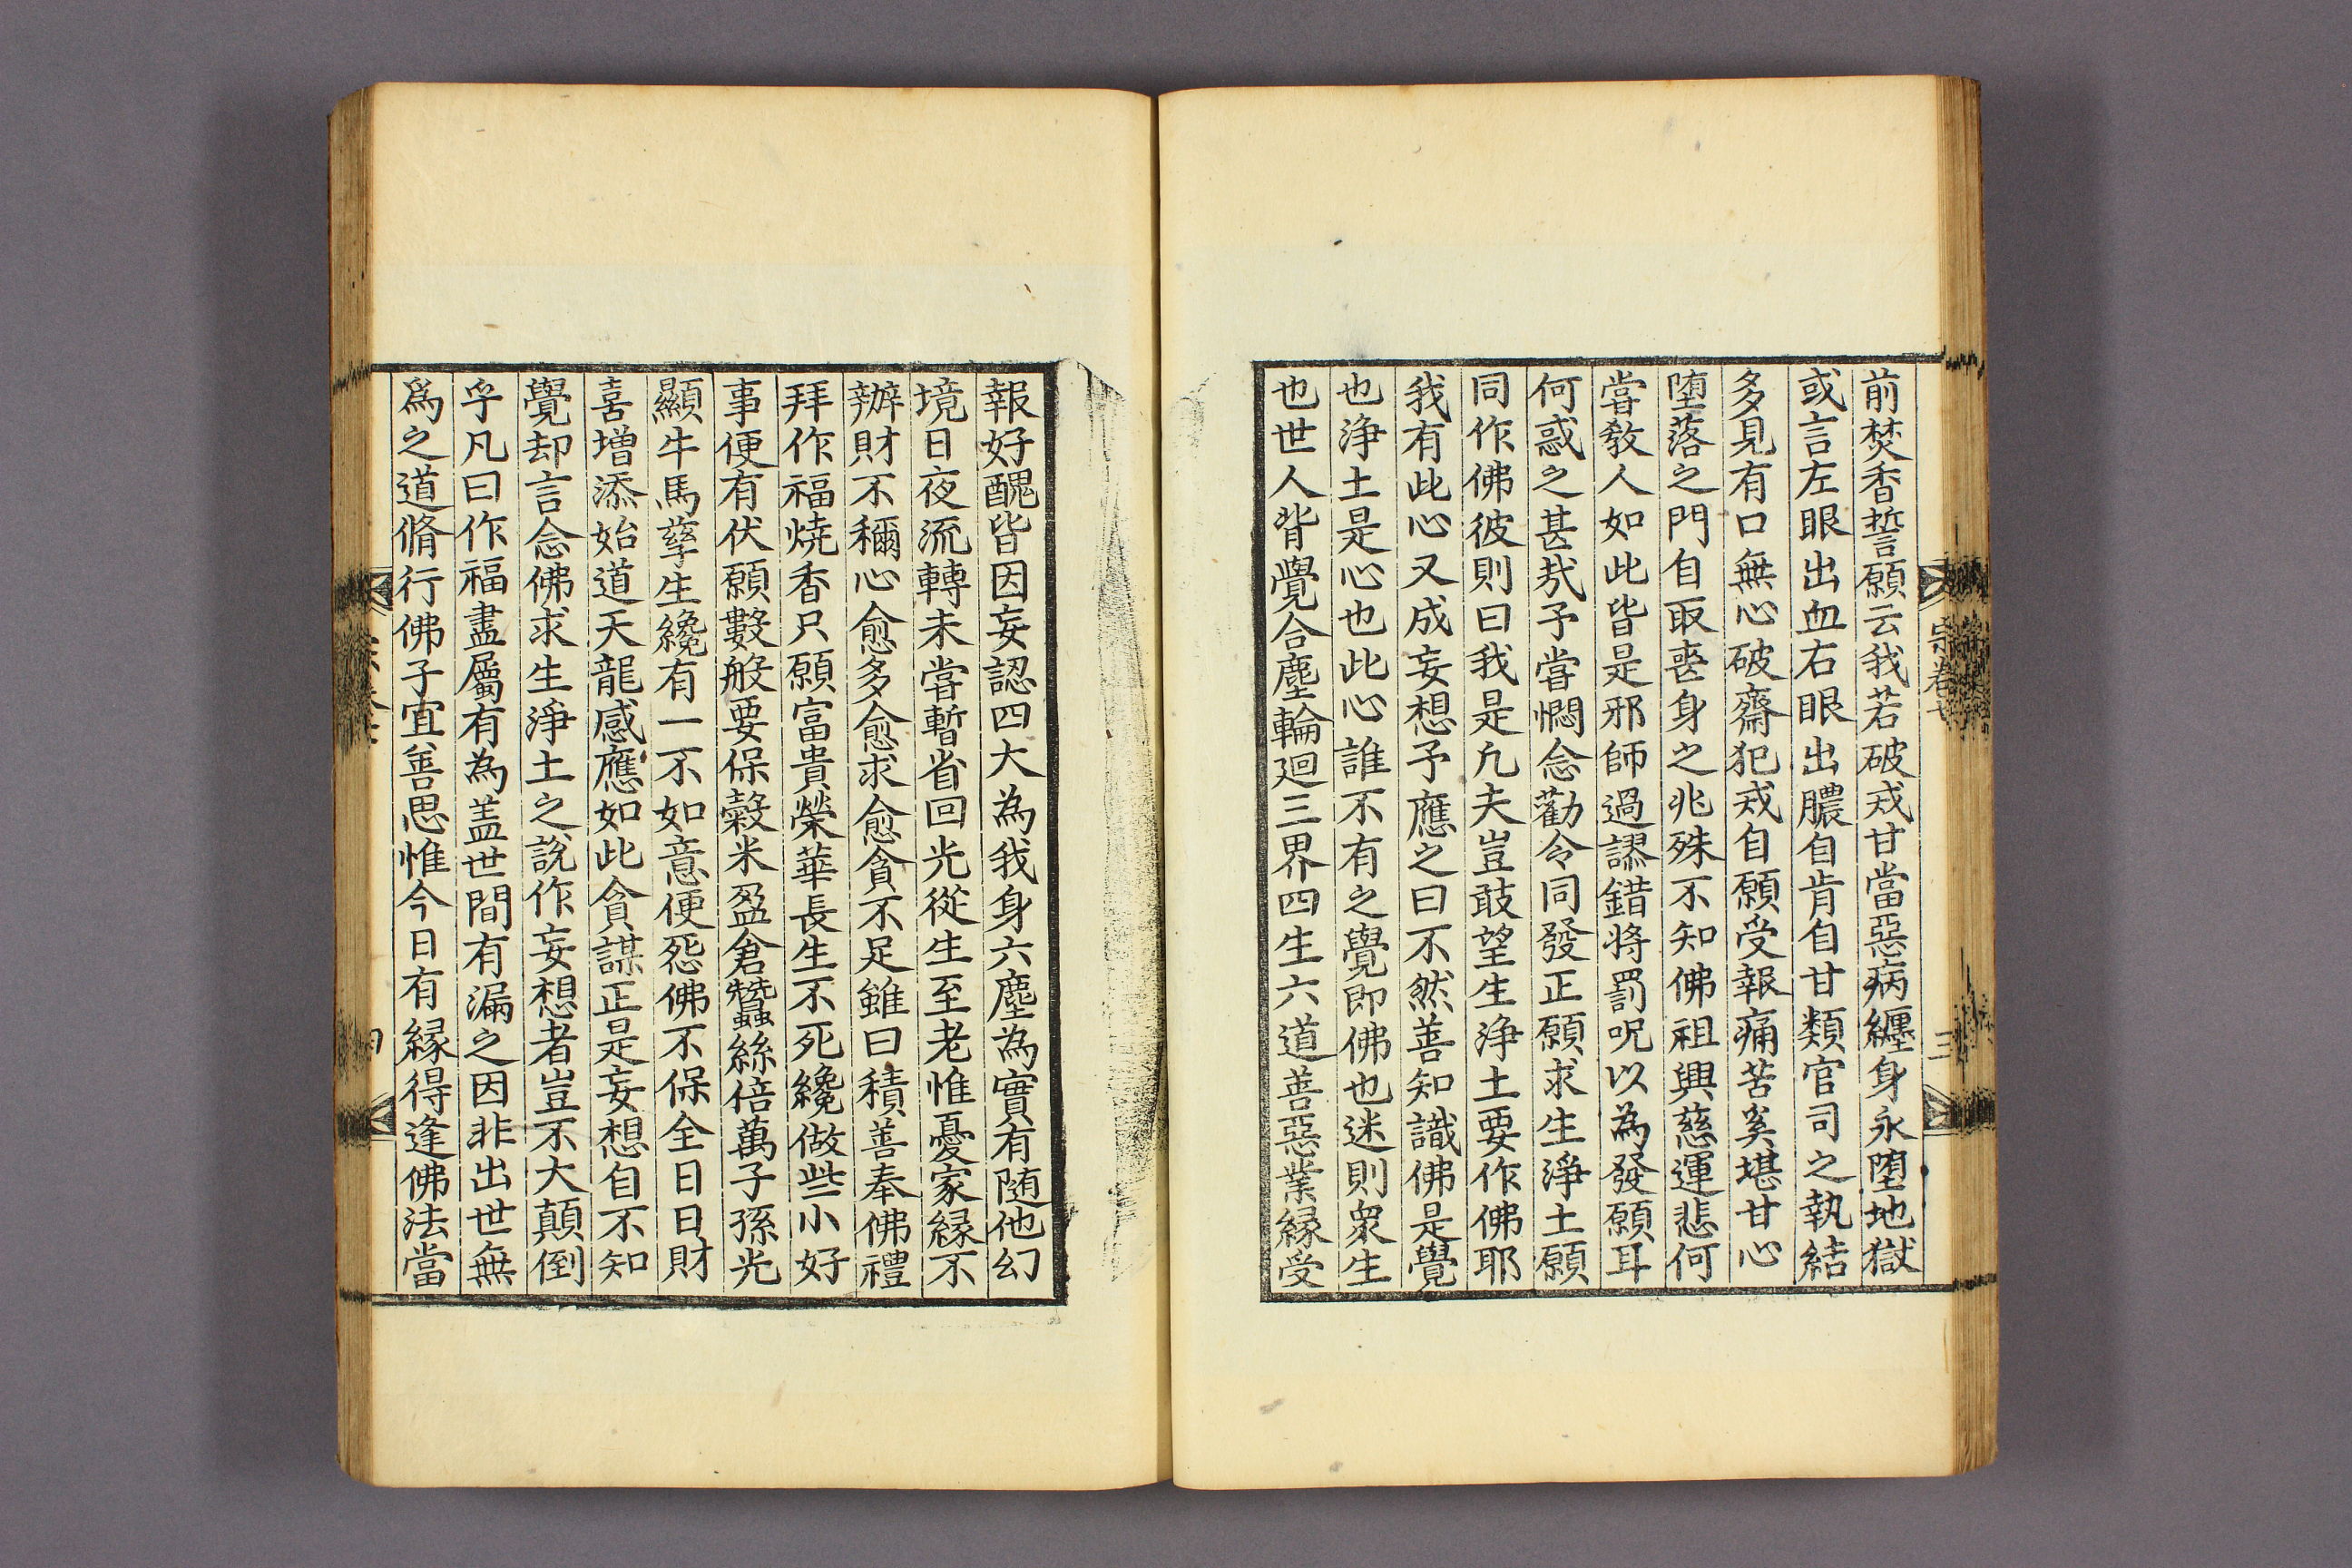 前焚香誓願云我若破戒甘當惡病纏身永堕地獄
或言左眼出血右眼出膿自肯自甘類官司之執結
多見有口無心破齋犯戒自願受報痛苦奚堪甘心
堕落之門自取喪身之兆殊不知佛祖興慈運悲何
嘗教人如此皆是邪師過謬錯將罰呪以為發願耳
何惑之甚㢤予嘗憫念勸令同發正願求生淨土願
同作佛彼則曰我是凢夫豈敢望生淨土要作佛耶
我有此心又成妄想予應之曰不然善知識佛是覺
也淨土是心也此心誰不有之覺即佛也迷則衆生
也世人背覺合塵輪迴三界四生六道善惡業緣受
宗卷七
三
報好醜皆因妄認四大為我身六塵為實有随他幻
境日夜流轉未嘗暫省回光從生至老惟憂家緣不
辦財不稱心愈多愈求愈貪不足雖曰積善奉佛禮
拜作福燒香只願富貴榮華長生不死纔做些小好
事便有伏願數般要保穀米盈倉蠶絲倍萬子孫光
顯牛馬孳生纔有一不如意便怨佛不保全日日財
喜增添始道天龍感應如此貪謀正是妄想自不知
覺却言念佛求生淨土之說作妄想者豈不大顛倒
乎凡曰作福盡屬有為盖世間有漏之因非出世無
爲之道脩行佛子宜善思惟今日有緣得逢佛法當